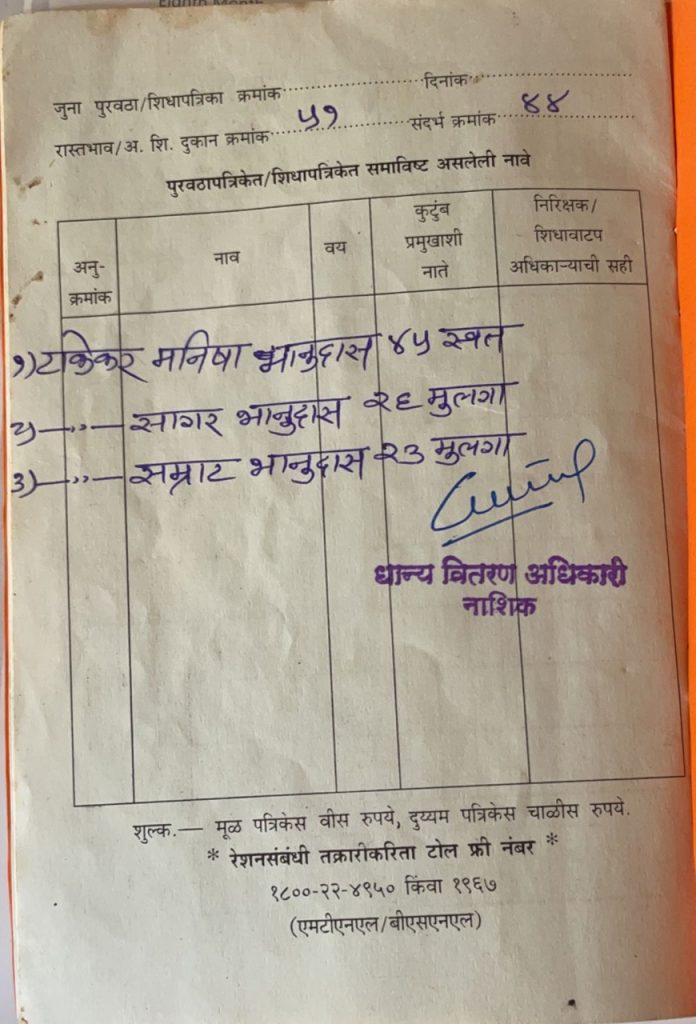 Eighth Month
जुना पुरवठा/शिधापत्रिका क्रमांक दिनांक
रास्तभाव/अ. शि. दुकान क्रमांक ५१ संदर्भ क्रमांक ४४
पुरवठापत्रिकेत/शिधापत्रिकेत समाविष्ट असलेली नावे
अनु-क्रमांक नाव वय कुटुंब प्रमुखाशी नाते निरिक्षक/शिधावाटप अधिकाऱ्याची सही
१) टाकेकर मनिषा भानुदास ४५ स्वत
२) —〃— सागर भानुदास २६ मुलगा
३) —〃— सम्राट भानुदास २३ मुलगा
धान्य वितरण अधिकारी
नाशिक
शुल्क.— मूळ पत्रिकेस वीस रुपये, दुय्यम पत्रिकेस चाळीस रुपये.
* रेशनसंबंधी तक्रारीकरिता टोल फ्री नंबर *
१८००-२२-४९५० किंवा १९६७
(एमटीएनएल/बीएसएनएल)